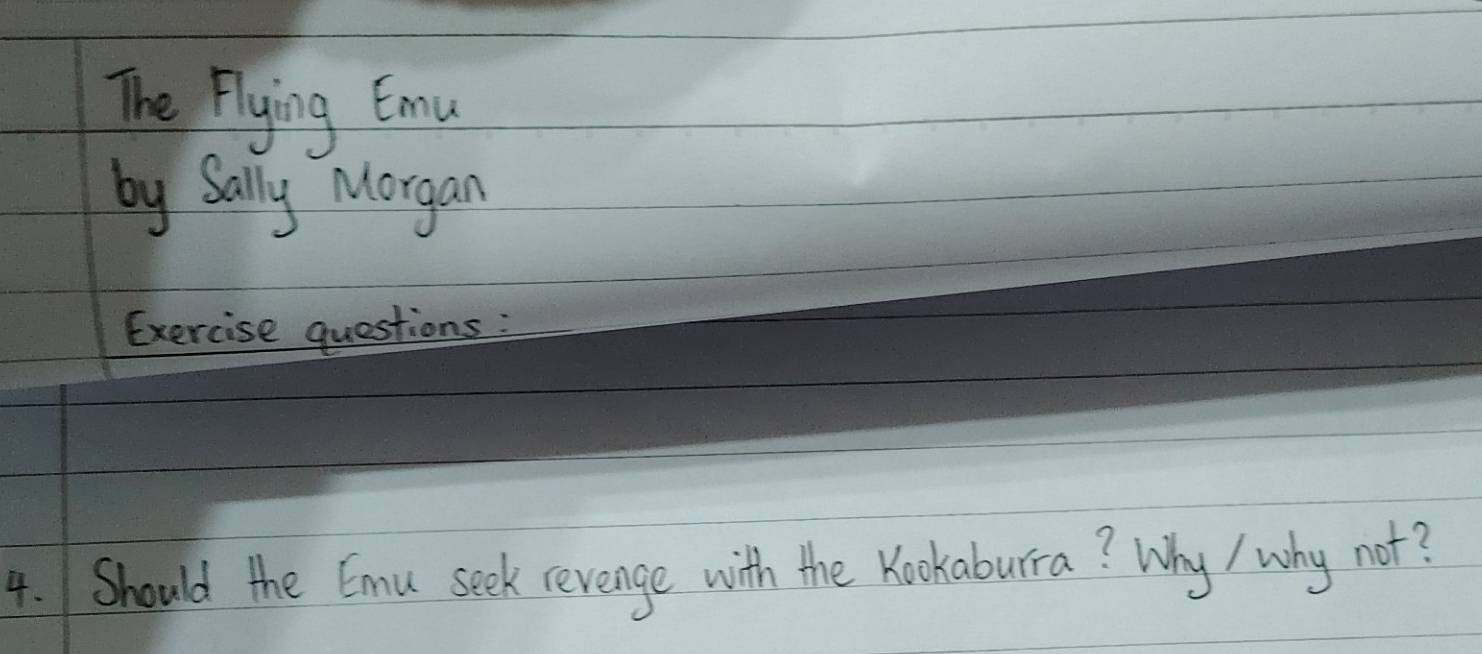 The Flying Emu
by Sally Morgan
Exercise questions:
4. Should the Emu seek revenge with the Kookaburra? Why / why not?